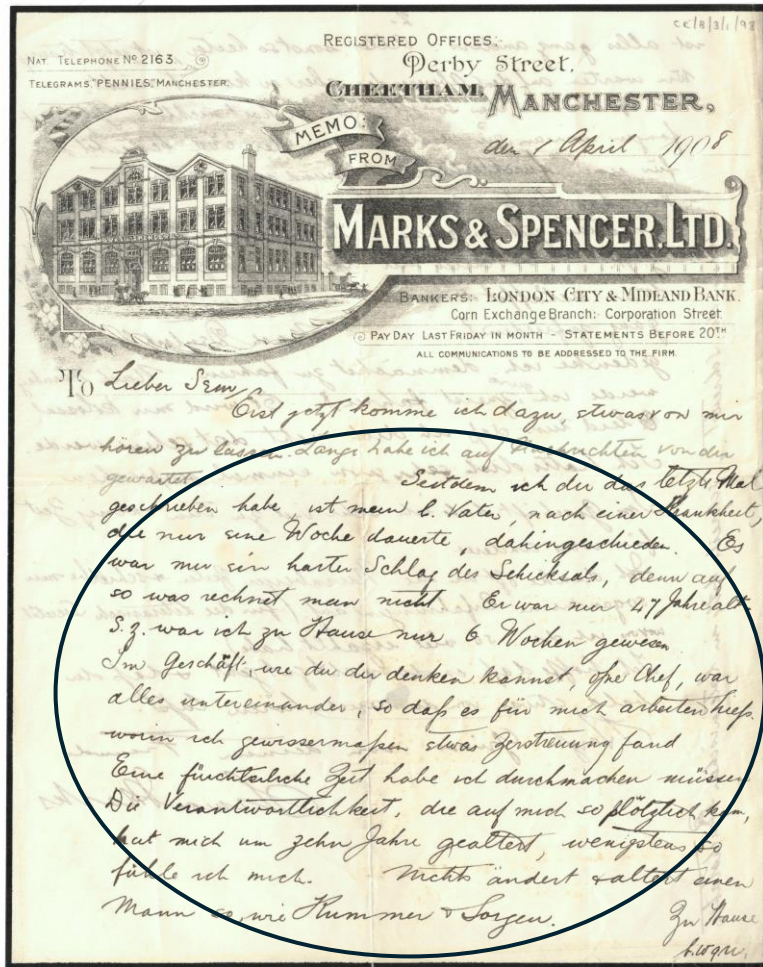 CK/B/3/1/98
REGISTERED OFFICES:
Derby Street.
CHEETHAM, MANCHESTER,
NAT. TELEPHONE No. 2163
TELEGRAMS, "PENNIES," MANCHESTER.
MEMO: FROM
den 1 April 1908
MARKS & SPENCER, LTD.
BANKERS: LONDON CITY & MIDLAND BANK.
Corn Exchange Branch: Corporation Street
PAY DAY LAST FRIDAY IN MONTH - STATEMENTS BEFORE 20TH
ALL COMMUNICATIONS TO BE ADDRESSED TO THE FIRM.
To Lieber Sem,
Erst jetzt komme ich dazu, etwas von mir
hören zu lassen. Lange habe ich auf Nachrichten von dir
gewartet. Seitdem ich dir das letzte Mal
geschrieben habe, ist mein l. Vater, nach einer Krankheit,
die nur eine Woche dauerte, dahingeschieden. Es
war mir ein harter Schlag des Schicksals, denn auf
so was rechnet man nicht Er war nur 47 Jahre alt.
S. z. war ich zu Hause nur 6 Wochen gewesen
Im Geschäft, wie du dir denken kannst, ohne Chef, war
alles untereinander, so daß es für mich arbeiten hieß.
worin ich gewissermaßen etwas Zerstreuung fand
Eine fürchterliche Zeit habe ich durchmachen müssen
Die Verantwortlichkeit, die auf mich so plötzlich kam,
hat mich um zehn Jahre gealtert, wenigstens so
fühle ich mich. Nichts ändert & altert einen
Mann so, wie Kummer & Sorgen. Zu Hause